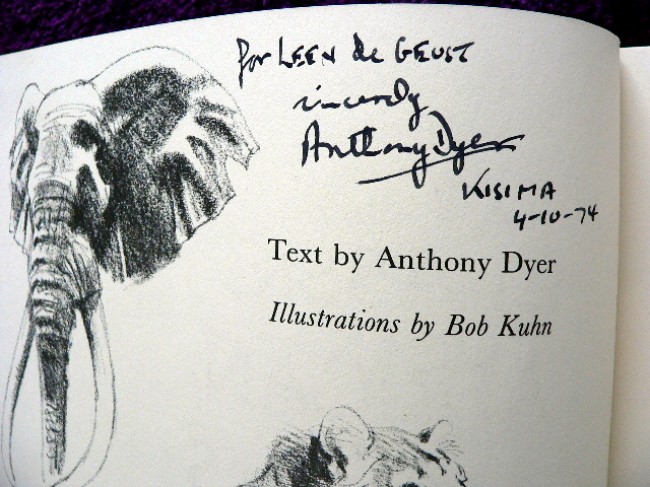 For LEEN de GEUST
sincerely
Anthony Dyer
KISIMA
4-10-74
Text by Anthony Dyer
Illustrations by Bob Kuhn